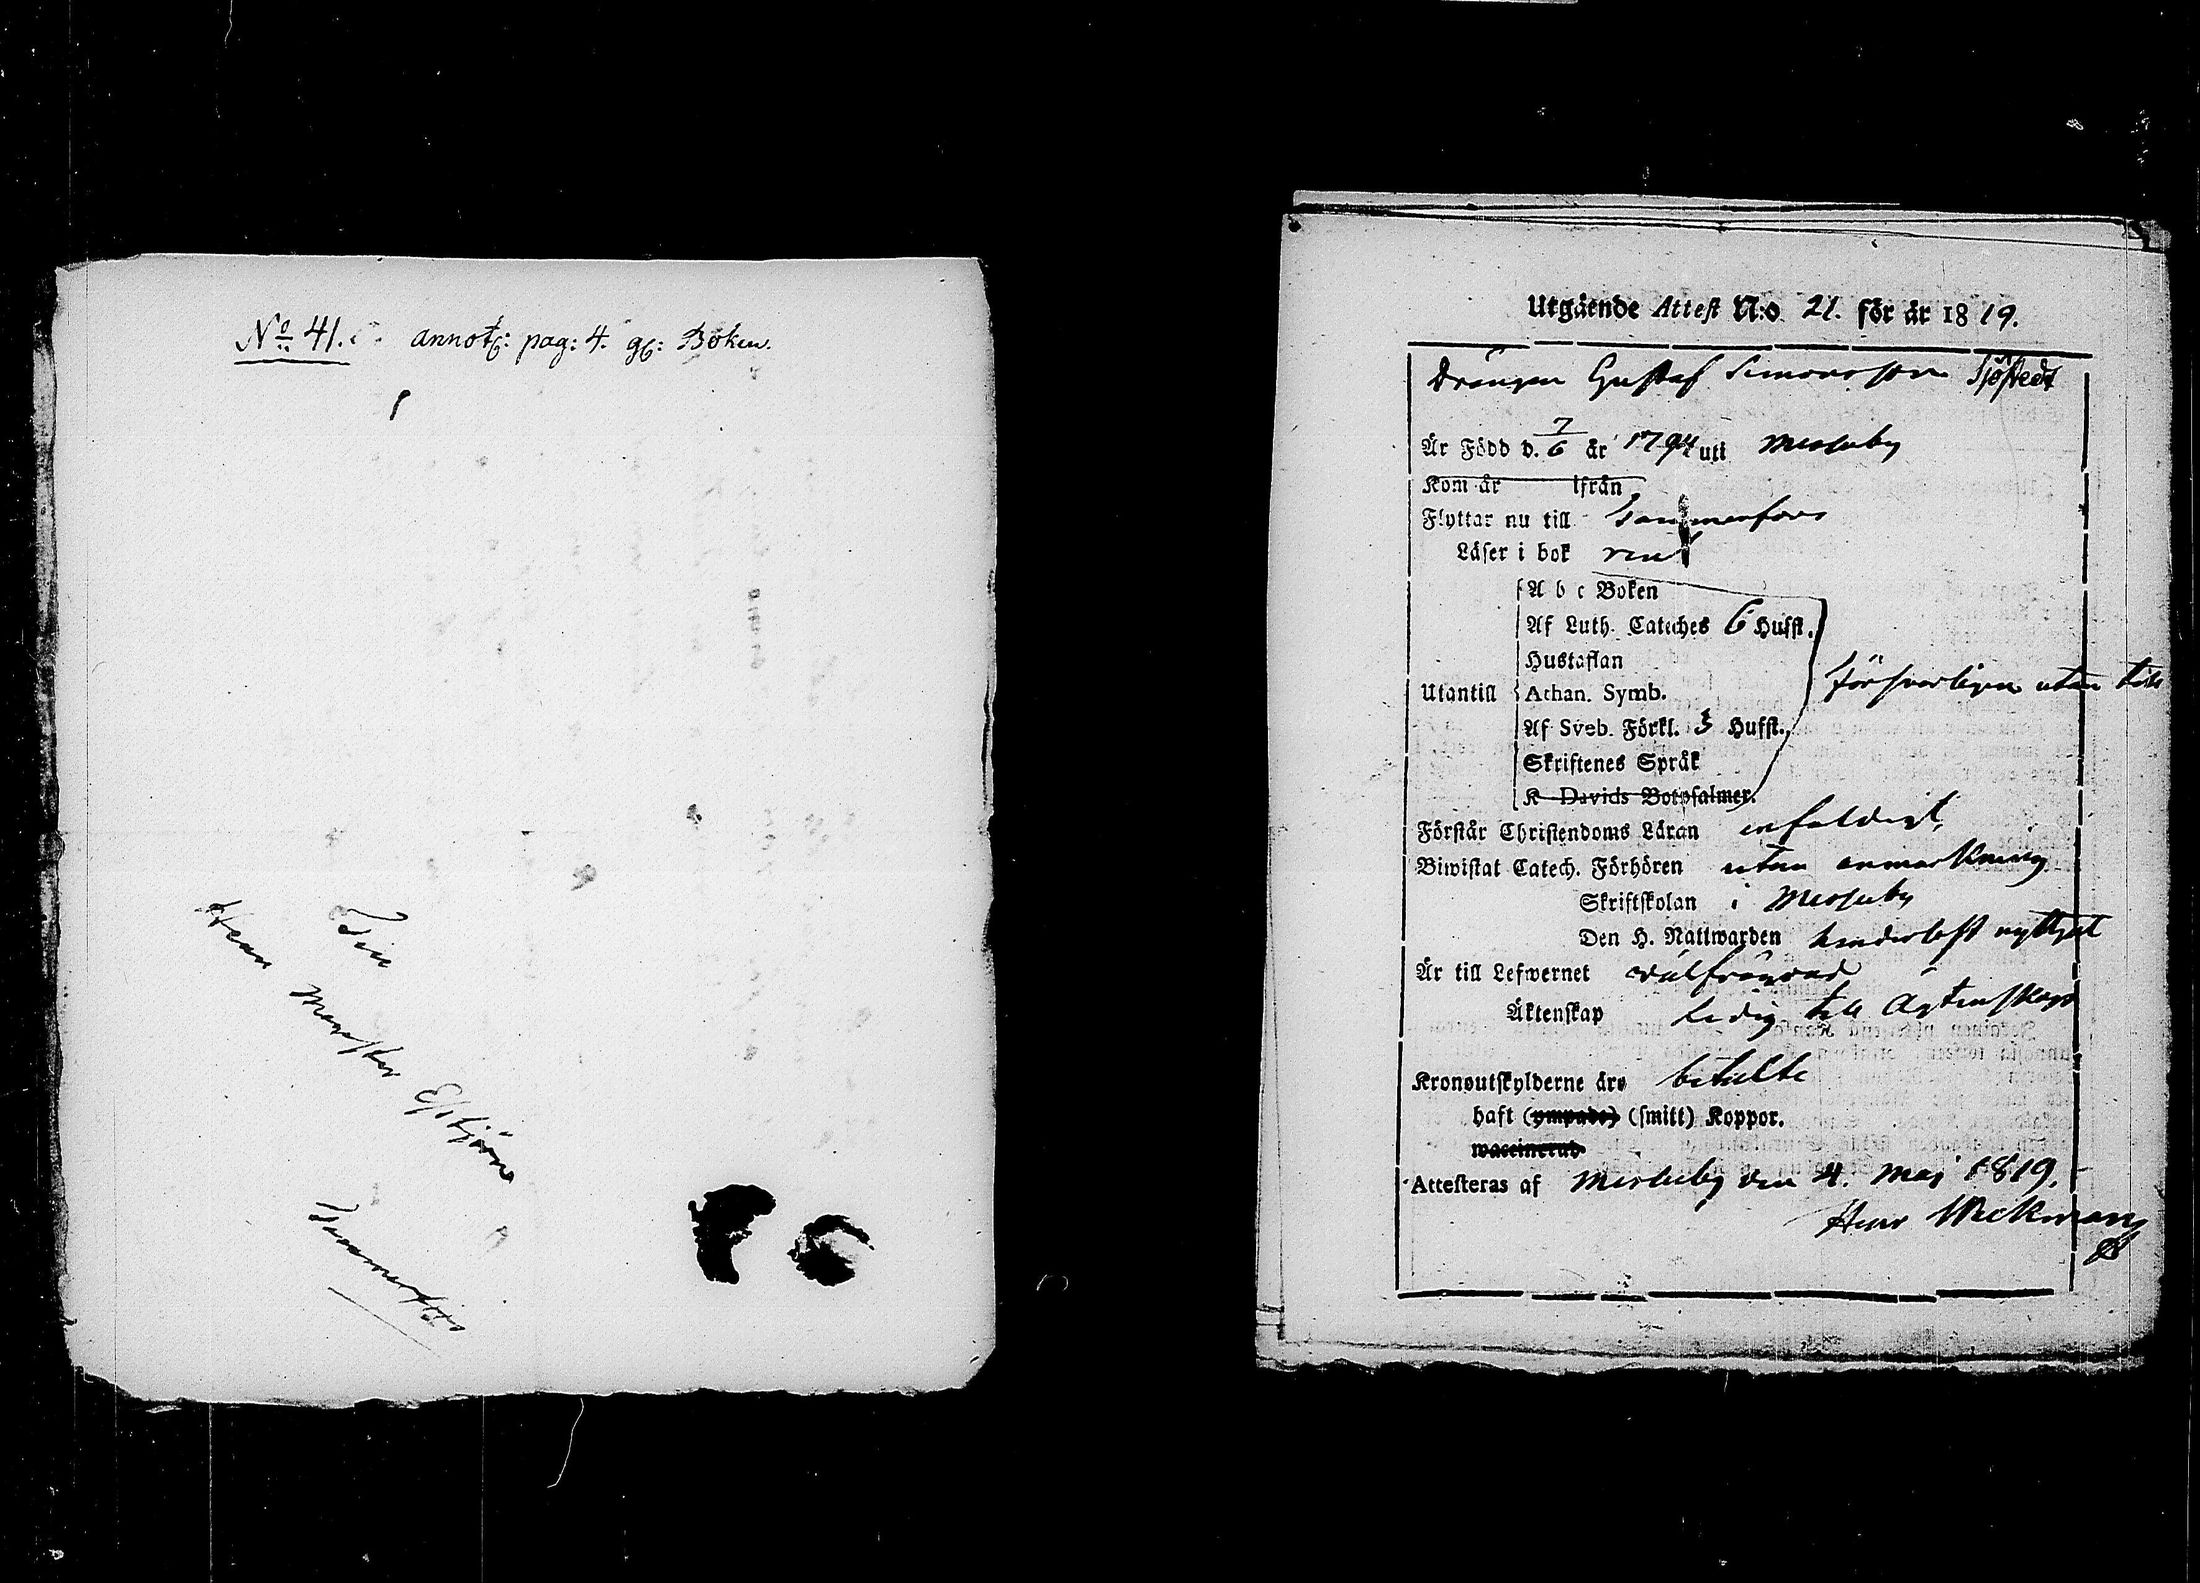 No 41. annot: pag: 4. gl: Boken.
Till
Herr Mönster Estjörn
Tammerfors
Utgående Attest N:o 21. för år 1819.
Drängen Gustaf Simonsson Sjöstedt
Är Född d. 7/6 år 1794 uti Messuby
Kom år ifrån
Flyttar nu till Tammerfors
Läser i bok rent
A b c Boken
Af Luth. Cateches 6 Hufst.
Hustaflan
Utantill Athan. Symb. försvarligen utan till
Af Sveb. Förkl. 3 Hufst.
Skriftenes Språk
K Davids Botpsalmer.
Förstår Christendoms Läran enfaldigt
Biwistat Catech. Förhören utan anmärkning
Skriftskolan i Messuby
Den H. Nattwarden hinderlöst nyttjat
Är till Lefwernet wälfrägdad
Äktenskap Ledig till Ägtenskap
Kronoutskylderne äro betalte
haft (ympade) (smitt) Koppor.
waccinerad
Attesteras af Messuby den 4. Maj 1819.
Henr Weckman